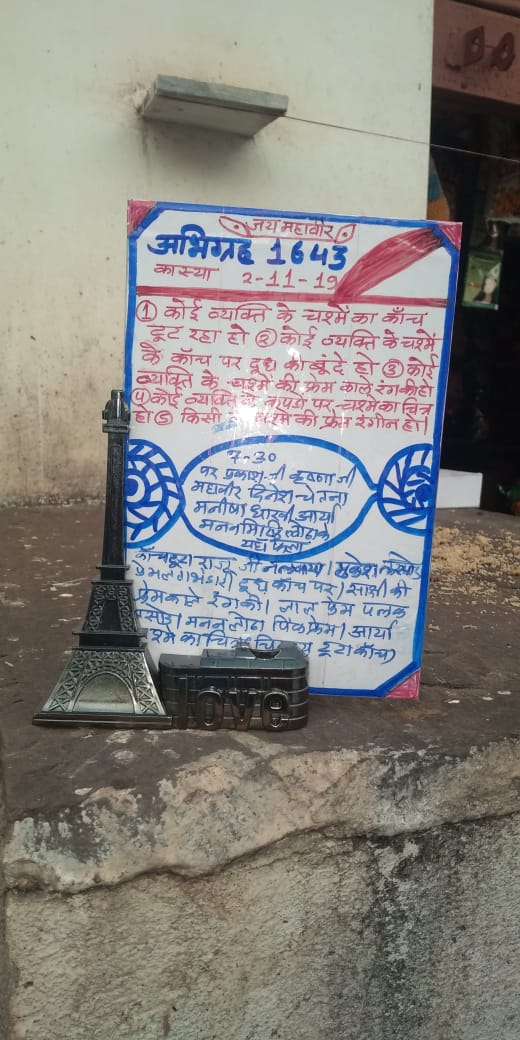 जय महावीर
अभिग्रह 1643
का स्या 2-11-19
① कोई व्यक्ति के चश्में का काँच
टूट रहा हो ② कोई व्यक्ति के चश्में
के काँच पर दूध की बूंदे हो ③ कोई
व्यक्ति के चश्में की फ्रेम काले रंग की हो
④ कोई व्यक्ति के कपडो पर चश्मे का चित्र
हो ⑤ किसी के चश्मे की फ्रेम रंगीन हो।
7.30
पर प्रकाश जी कृष्णा जी
महावीर दिनेश चेतना
मनीषा आर्या
मनन लोढा के
यहां फला
काँच टूटा राजू जी मुकेश
दूध काँच पर। साक्षी की
फ्रेम काले रंग की। लाल फ्रेम पलक
मनन लोढा पिंक फ्रेम। आर्या
चश्मे का चित्र टूटा काँच
love